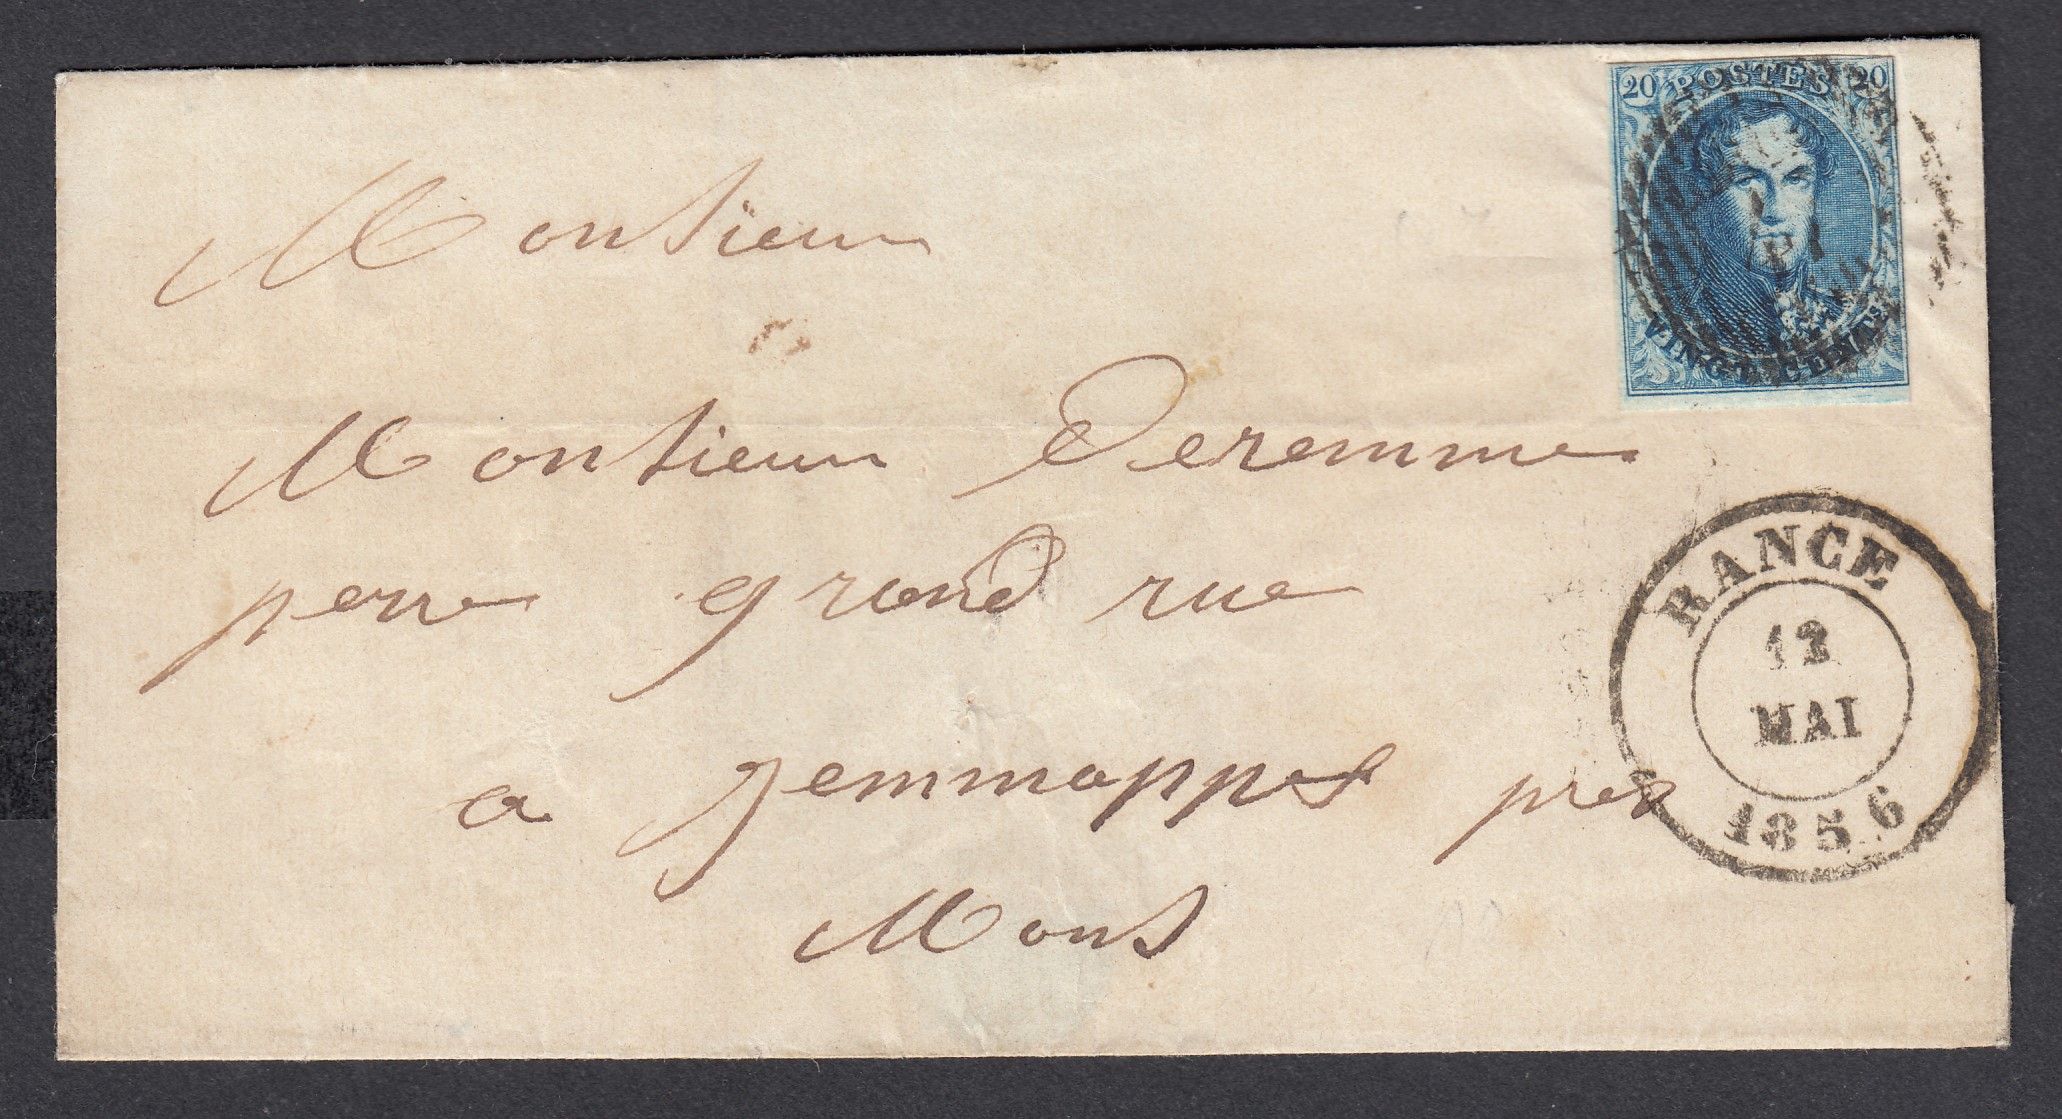 20 POSTES 20
VINGT CENTS
Monsieur
Monsieur Deremme
pere grand rue
a Jemmappes pres
Mons
RANCE
12
MAI
1856